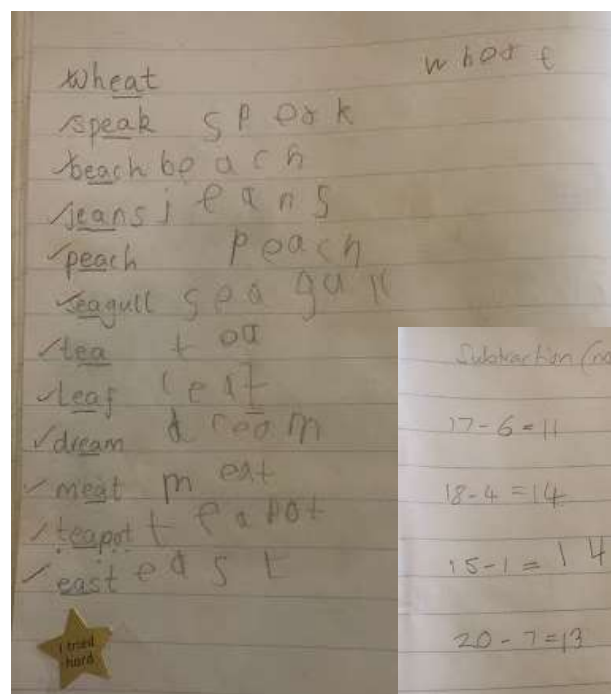 wheat wheat
speak speak
beach beach
jeans jeans
peach peach
seagull seagull
tea tea
leaf leaf
dream dream
meat meat
teapot teapot
east east
I tried
hard
Subtraction (no
17-6=11
18-4=14
15-1=14
20-7=13